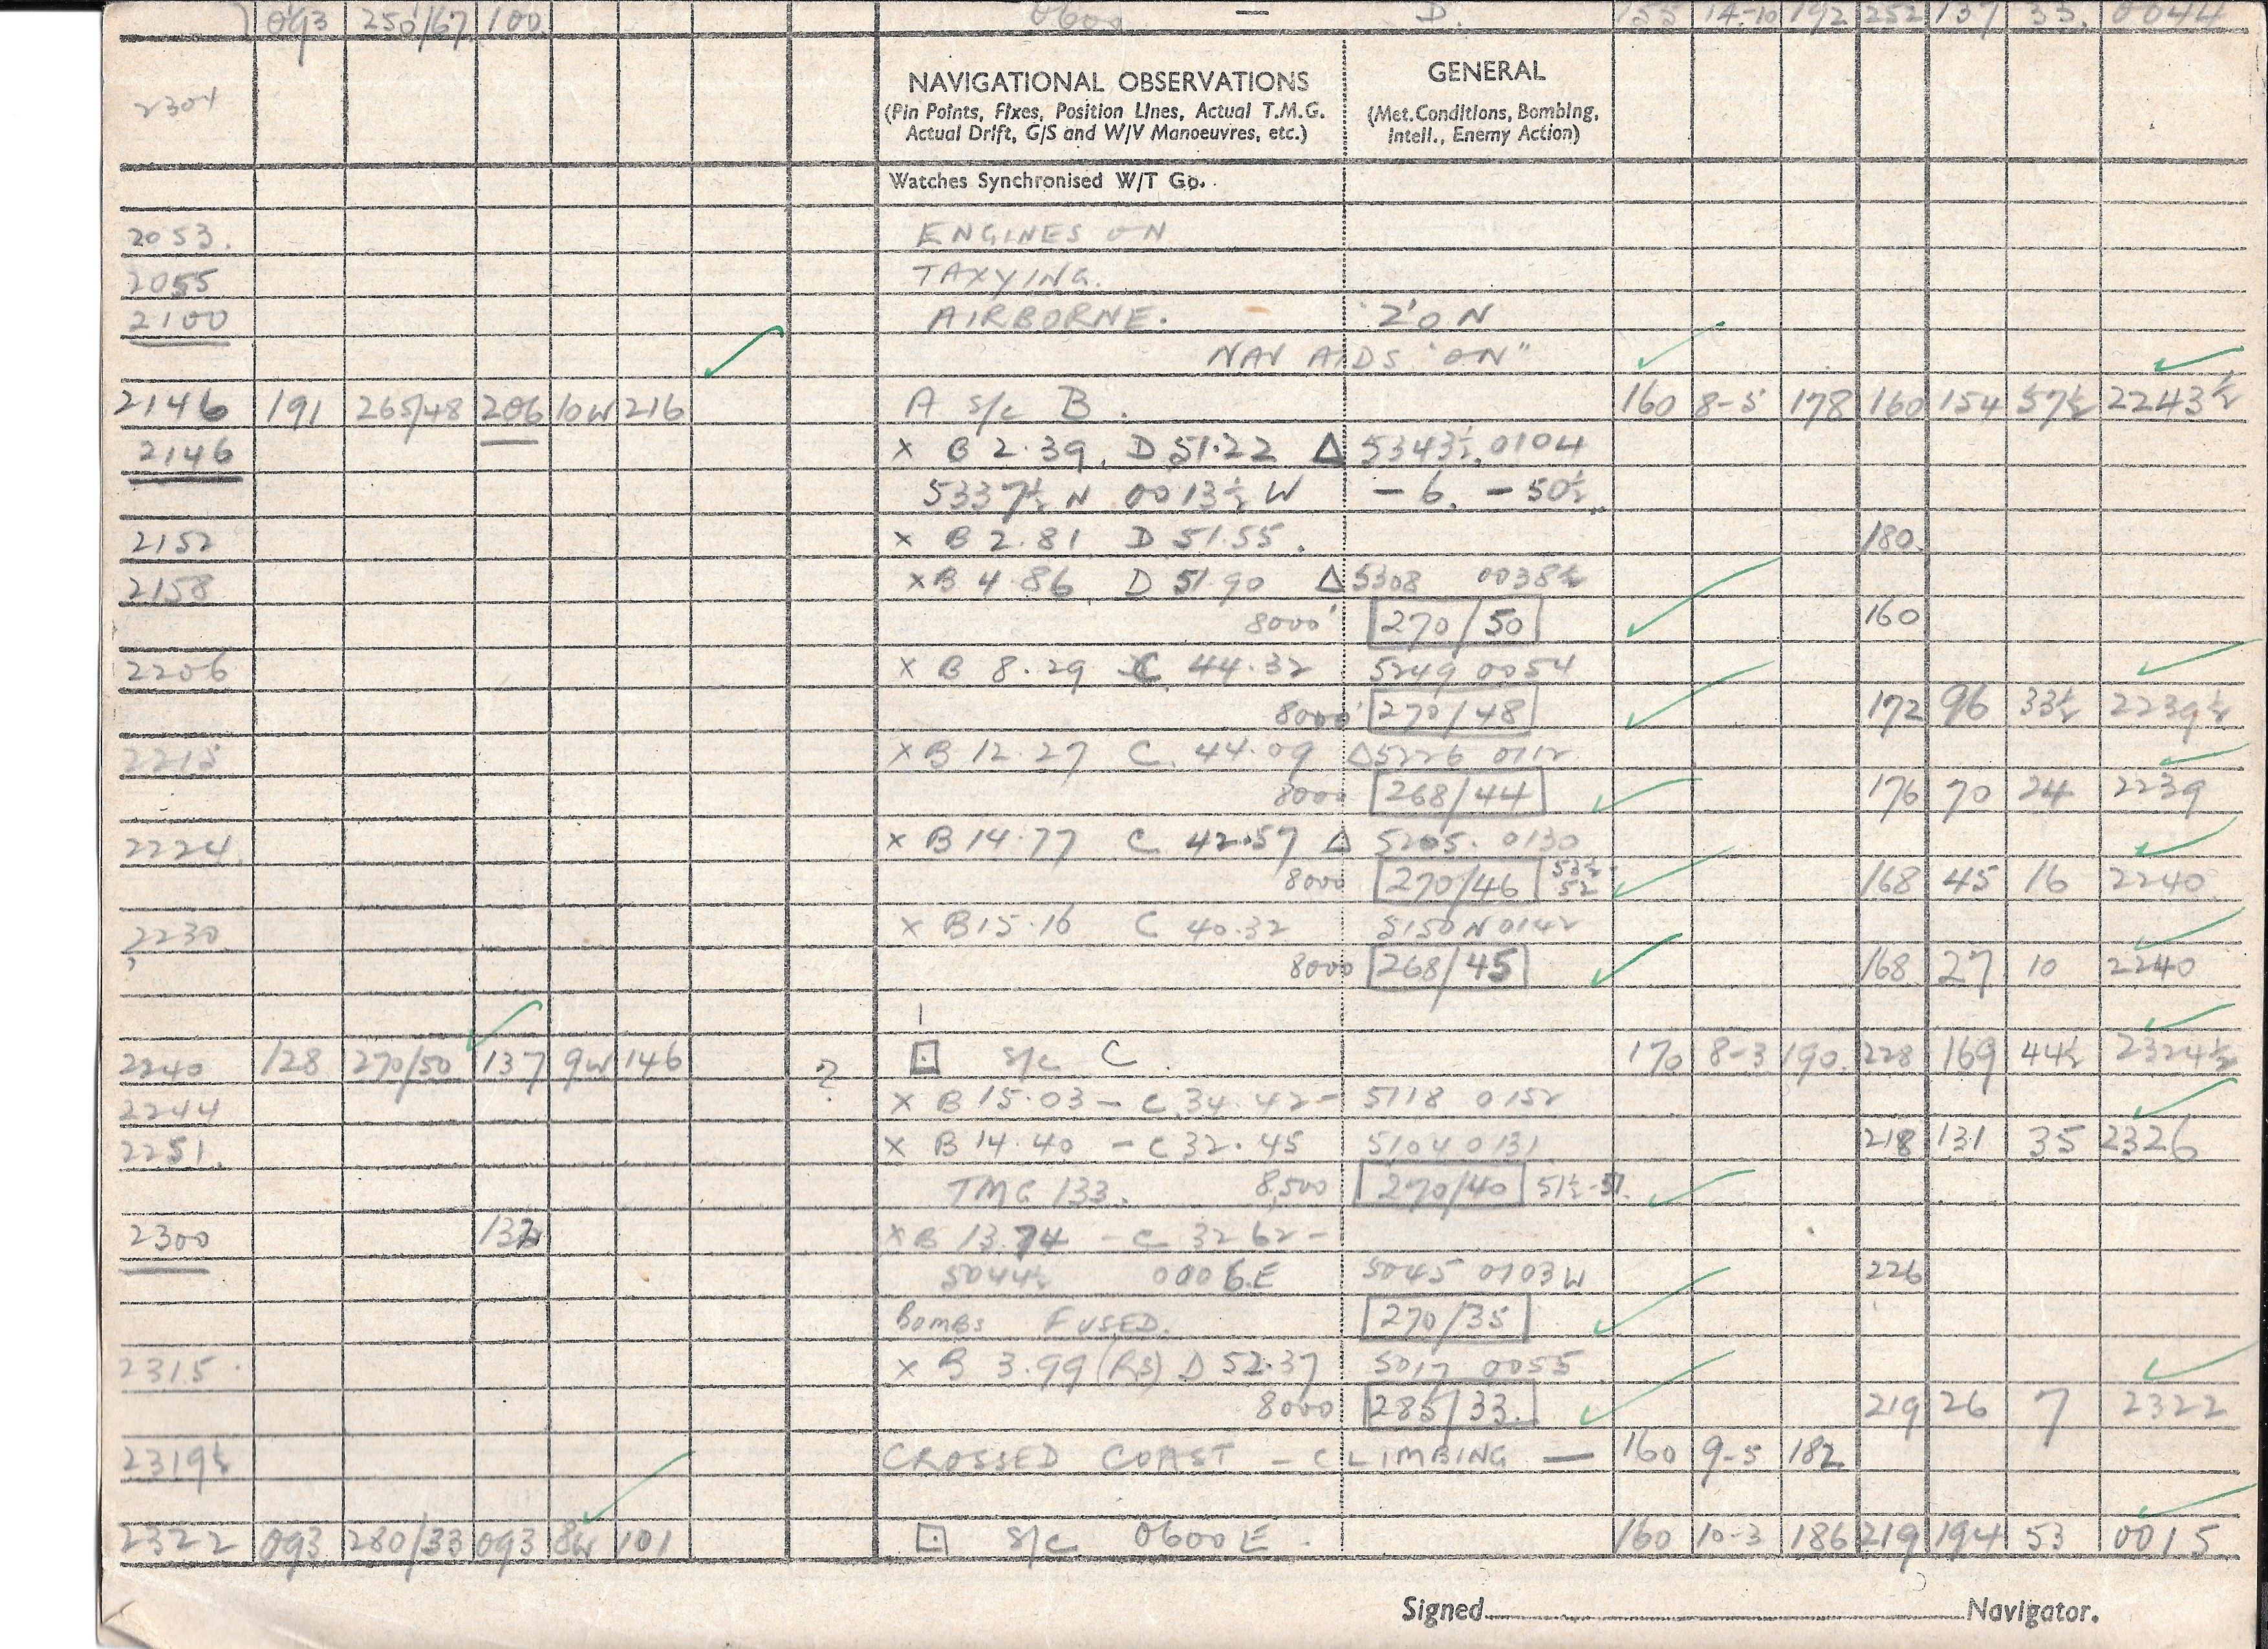 093 250/67 100 0600 — D. 155 14-10 192 252 137 33. 0044
NAVIGATIONAL OBSERVATIONS GENERAL
2304 (Pin Points, Fixes, Position Lines, Actual T.M.G. (Met. Conditions, Bombing,
Actual Drift, G/S and W/V Manoeuvres, etc.) Intell., Enemy Action)
Watches Synchronised W/T Go.
2053. ENGINES ON
2055 TAXYING.
2100 AIRBORNE. 2'0 N
NAV AIDS "ON"
2146 191 265/48 206 10W 216 A S/C B. 160 8-5 178 160 154 57½ 2243½
2146 X B 2.39. D 51.22 Δ 5343½ 0104
5337½ N 0013½ W - 6. - 50½
2152 X B 2.81 D 51.55. 180
2158 X B 4.86 D 51.90 Δ 5308 0038½
8000' 270/50 160
2206 X B 8.29 C 44.32 5249 0054
8000' 270/48 172 96 33½ 2239½
2215 X B 12.27 C. 44.09 Δ 5226 0112
8000 268/44 176 70 24 2239
2224 X B 14.77 C 42.57 Δ 5205. 0130
8000 270/46 53½- 52 168 45 16 2240
2230 X B 15.16 C 40.32 5150 N 0142
8000 268/45 168 27 10 2240
2240 128 270/50 137 9W 146 ? ⊡ S/C C. 170 8-3 190. 228 169 44½ 2324½
2244 X B 15.03 - C 34.42 - 5118 0152
2251. X B 14.40 - C 32.45 5104 0131 218 131 35 2326
TMG 133. 8,500 270/40 51½-51
2300 X B 13.74 - C 32 62 -
5044½ 0006.E 5045 0103 W 226
BOMBS FUSED. 270/35
2315. X B 3.99 (RS) D 52.37 5017 0055
8000 285/33. 219 26 7 2322
2319½ CROSSED COAST - CLIMBING — 160 9-5 182
2322 093 280/33 093 8W 101 ⊡ S/C 0600 E. 160 10-3 186 219 194 53 0015
Signed Navigator.